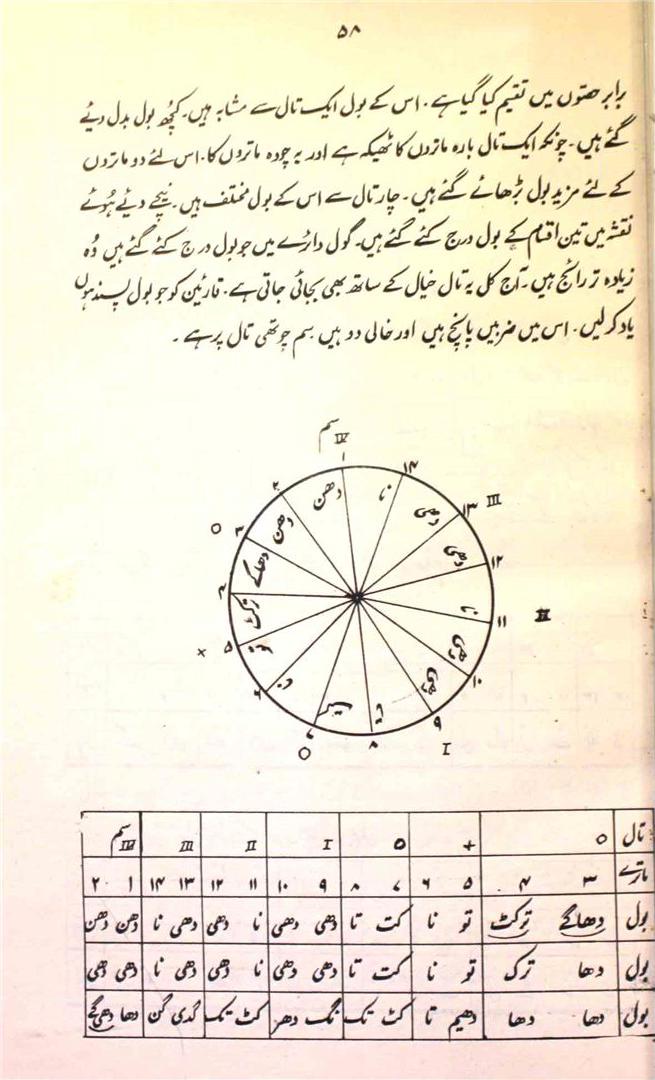 ۵۸
برابر حصّوں میں تقیم کیا گیا ہے۔ اس کے بول ایک تال سے مشابہ ہیں۔ کچھ بول بدل دیئے
گئے ہیں۔ چونکہ ایک تال بارہ ماتروں کا ٹھیکہ ہے اور یہ چودہ ماتروں کا۔ اس لئے دو ماتروں
کے لئے مزید بول بڑھائے گئے ہیں۔ چار تال سے اس کے بول مختلف ہیں۔ نیچے دیئے ہُوئے
نقشہ میں تین اقسام کے بول درج کئے گئے ہیں۔ گول دائرے میں جو بول درج کئے گئے ہیں وُہ
زیادہ تر رائج ہیں۔ آج کل یہ تال خیال کے ساتھ بھی بجائی جاتی ہے۔ قارئین کو جو بول پسند ہوں
یاد کر لیں۔ اس میں ضربیں پانچ ہیں اور خالی دو ہیں سم چوتھی تال پر ہے۔
سم
IV
۱ دھن
۲ دھن
۳ دھاگے O
۴ ترکٹ
۵ تو ×
۶ نا
۷ O
۸ تا
۹ دھی I
۱۰ دھی
۱۱ نا II
۱۲ دھی
۱۳ دھی III
۱۴ نا
تال O + O I II III سم IV
ماترے ۳ ۴ ۵ ۶ ۷ ۸ ۹ ۱۰ ۱۱ ۱۲ ۱۳ ۱۴ ۱ ۲
بول دھاگے ترکٹ تو نا کت تا دھی دھی نا دھی دھی نا دھن دھن
بول دھا ترک تو نا کت تا دھی دھی نا دھی دھی نا دھی دھی
بول دھا دھا دھیم تا کٹ تک گ دھر کٹ تک گدی گن دھا دھی گے